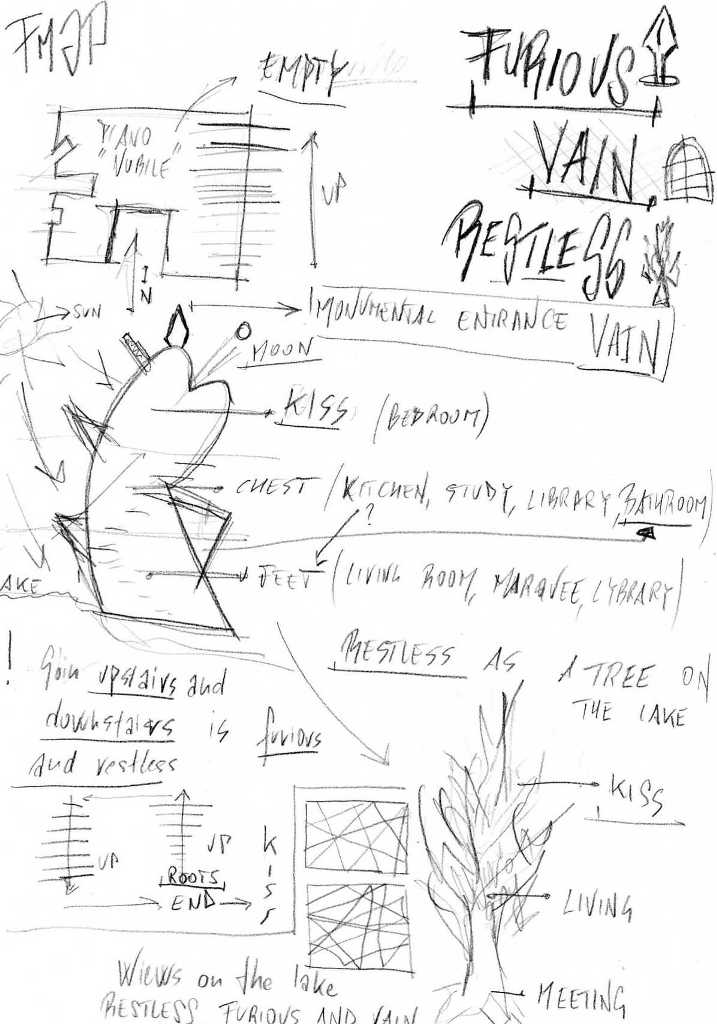 EMPTY
FURIOUS
PIANO
"NOBILE"
VAIN
UP
RESTLESS
IN
SUN
! MONUMENTAL ENTRANCE
VAIN
MOON
KISS (BEDROOM)
CHEST (KITCHEN, STUDY, LIBRARY, BATHROOM)
?
FEET (LIVING ROOM, MARQUEE, LYBRARY)
AKE
RESTLESS AS A TREE ON
THE LAKE
! Goin upstairs and
downstairs is furious
and restless
KISS
UP
UP
KISS
ROOTS
END
LIVING
MEETING
Wiews on the lake
RESTLESS FURIOUS AND VAIN